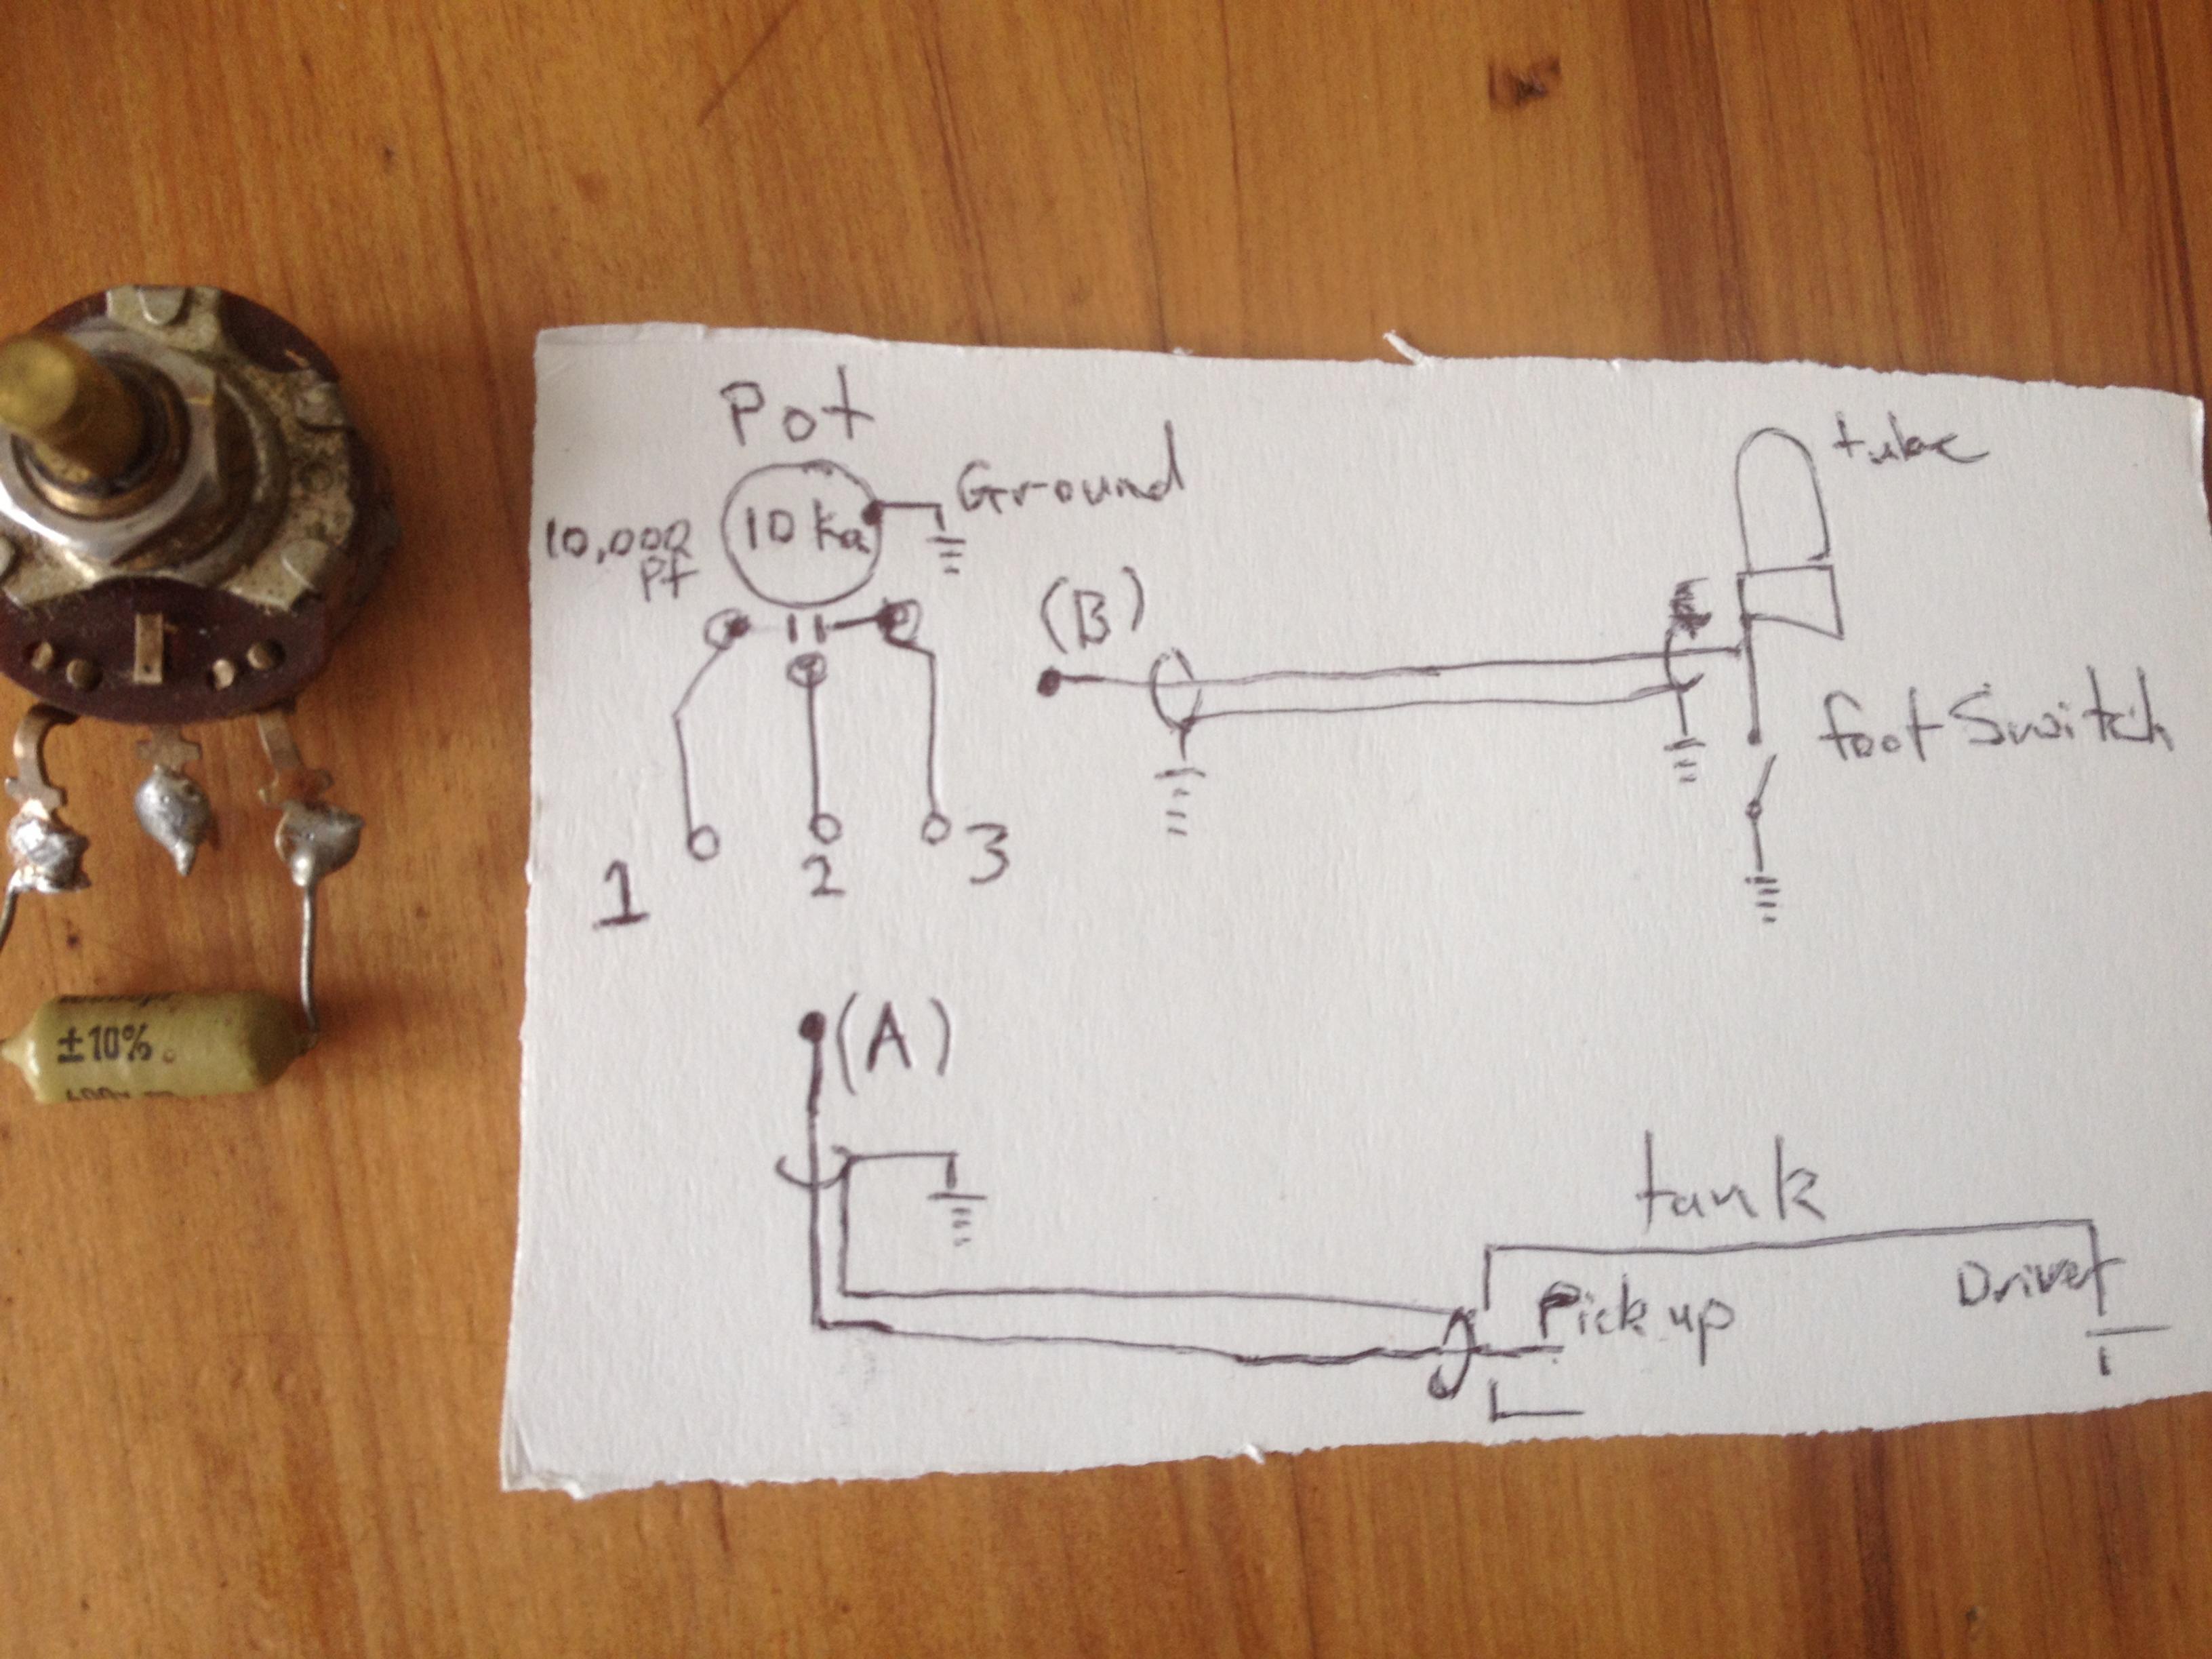 Pot
Ground
10,000
Pf
10 ka
tube
(B)
foot Switch
1
2
3
±10%
(A)
tank
Pick up
Driver